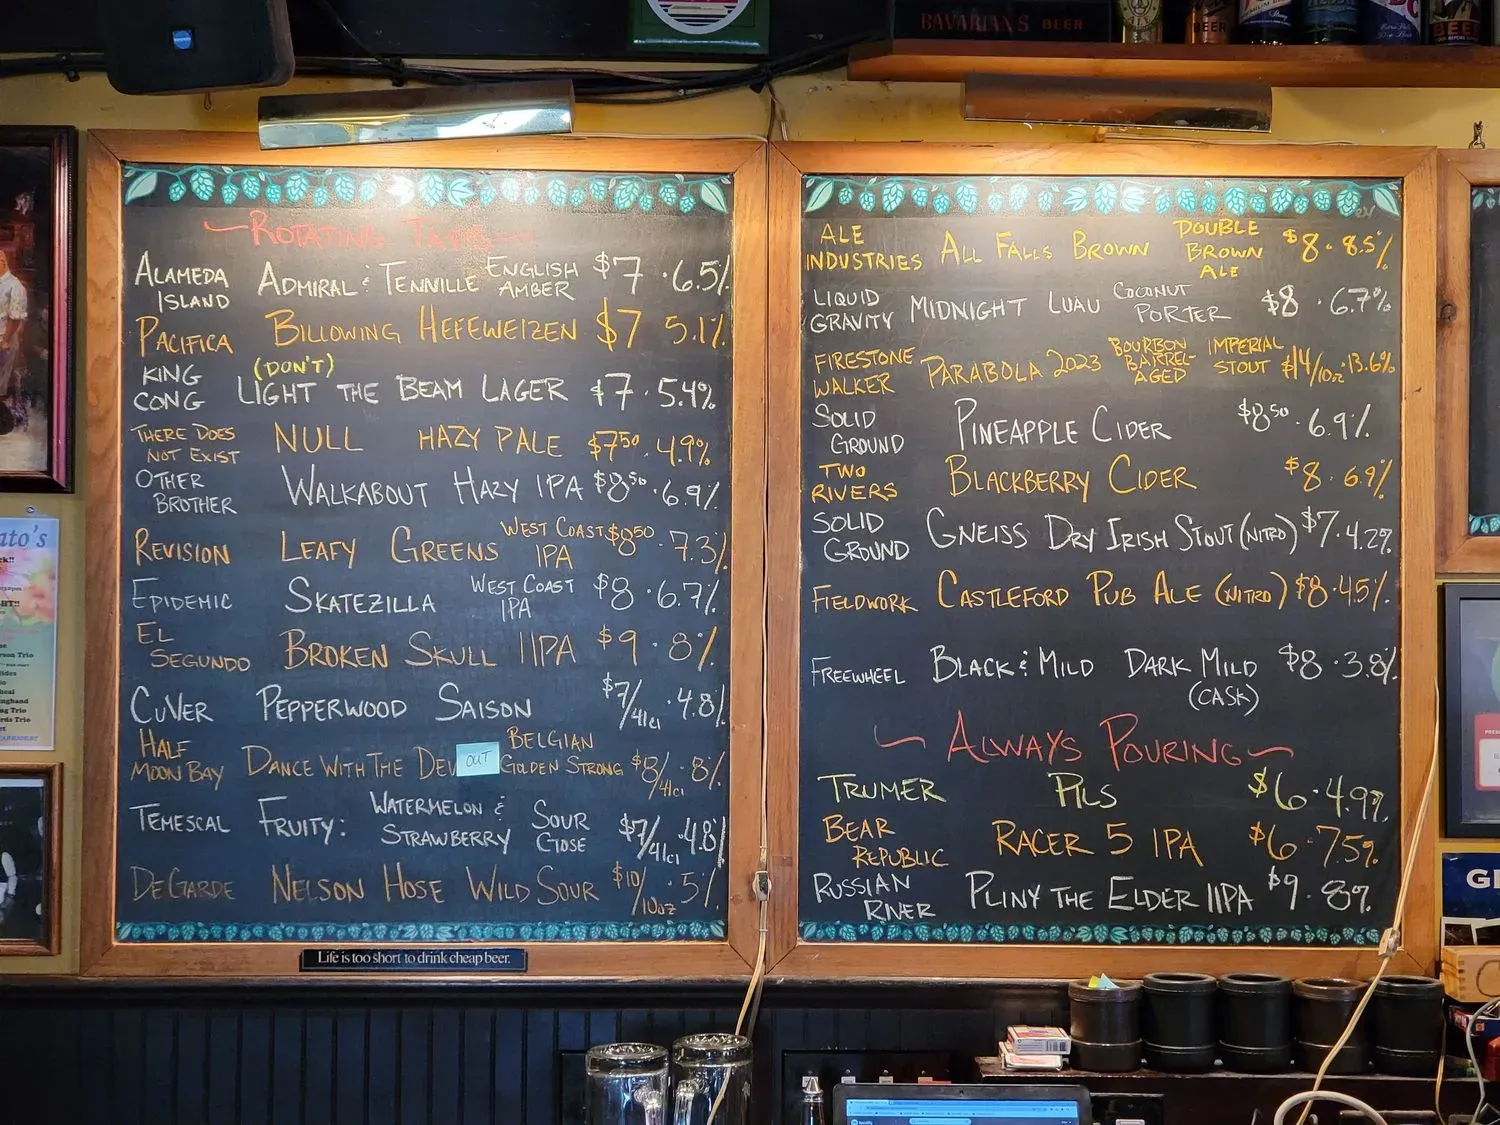 BAVARIAN'S BEER
~ROTATING TAPS~
ALAMEDA ISLAND ADMIRAL & TENNILLE ENGLISH AMBER $7 · 6.5%
PACIFICA BILLOWING HEFEWEIZEN $7 5.1%
KING CONG (DON'T) LIGHT THE BEAM LAGER $7 · 5.4%
THERE DOES NOT EXIST NULL HAZY PALE $7.50 · 4.9%
OTHER BROTHER WALKABOUT HAZY IPA $8.50 · 6.9%
REVISION LEAFY GREENS WEST COAST IPA $8.50 · 7.3%
EPIDEMIC SKATEZILLA WEST COAST IPA $8 · 6.7%
EL SEGUNDO BROKEN SKULL IIPA $9 · 8%
CUVER PEPPERWOOD SAISON $7/41cl · 4.8%
HALF MOON BAY DANCE WITH THE DEV OUT BELGIAN GOLDEN STRONG $8/41cl · 8%
TEMESCAL FRUITY: WATERMELON & STRAWBERRY SOUR GOSE $7/41cl · 4.8%
DEGARDE NELSON HOSE WILD SOUR $10/10oz · 5%
Life is too short to drink cheap beer.
ALE INDUSTRIES ALL FALLS BROWN DOUBLE BROWN ALE $8 · 8.5%
LIQUID GRAVITY MIDNIGHT LUAU COCONUT PORTER $8 · 6.7%
FIRESTONE WALKER PARABOLA 2023 BOURBON BARREL-AGED IMPERIAL STOUT $14/10oz · 13.6%
SOLID GROUND PINEAPPLE CIDER $8.50 · 6.9%
TWO RIVERS BLACKBERRY CIDER $8 · 6.9%
SOLID GROUND GNEISS DRY IRISH STOUT (NITRO) $7 · 4.2%
FIELDWORK CASTLEFORD PUB ALE (NITRO) $8 · 4.5%
FREEWHEEL BLACK & MILD DARK MILD (CASK) $8 · 3.8%
~ALWAYS POURING~
TRUMER PILS $6 · 4.9%
BEAR REPUBLIC RACER 5 IPA $6 · 7.5%
RUSSIAN RIVER PLINY THE ELDER IIPA $9 · 8%